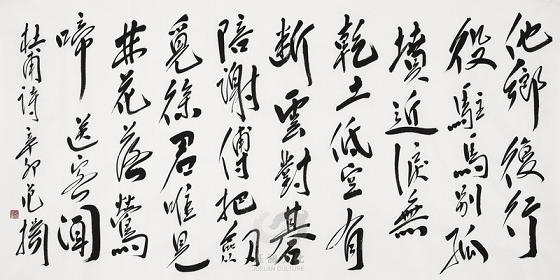 他鄉復行
役駐馬別孤
墳近淚無
乾土低空有
斷雲對碁
陪謝傅把劍
覓徐君唯見
林花落鶯
啼送客聞
杜甫詩辛卯
CULTURE